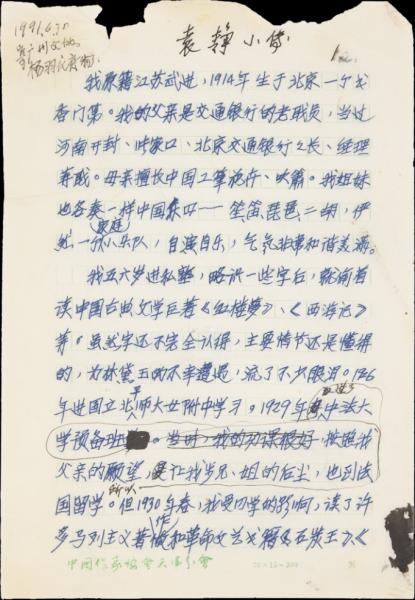 1991.6.20
袁静小传
我原籍江苏武进，1914年生于北京一个书
香门第。我的父亲是交通银行的老职员，当过
河南开封、张家口、北京交通银行行长、经理
等职。母亲擅长中国工笔花卉、吹箫。我姐妹
也各奏一样中国乐器——笙笛琵琶二胡，俨
然一个家庭小乐队，自演自乐，气氛非常和谐美满。
我五六岁进私塾，略识一些字后，就闹着
读中国古典文学巨著《红楼梦》、《西游记》
等。虽然字还不完全认得，主要情节还是懂得
的，为林黛玉的不幸遭遇，流了不少眼泪。1926
年进国立北平师大女附中学习。1929年 中法大
学预备班 。当时，我的功课很好 按照我
父亲的愿望，要让我步兄、姐的后尘，也到法
国留学。所以 但1930年春，我受四学的影响，读了许
多马列主义著作和革命文艺书籍《石炭王》、《
中国作家协会天津分会
20×15=300